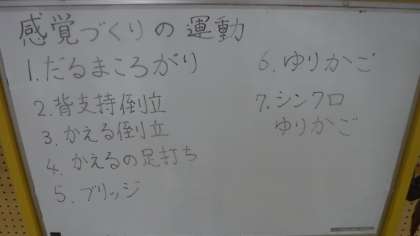 感覚づくりの運動
1.だるまころがり
2.背支持倒立
3.かえる倒立
4.かえるの足打ち
5.ブリッジ
6.ゆりかご
7.シンクロ
ゆりかご